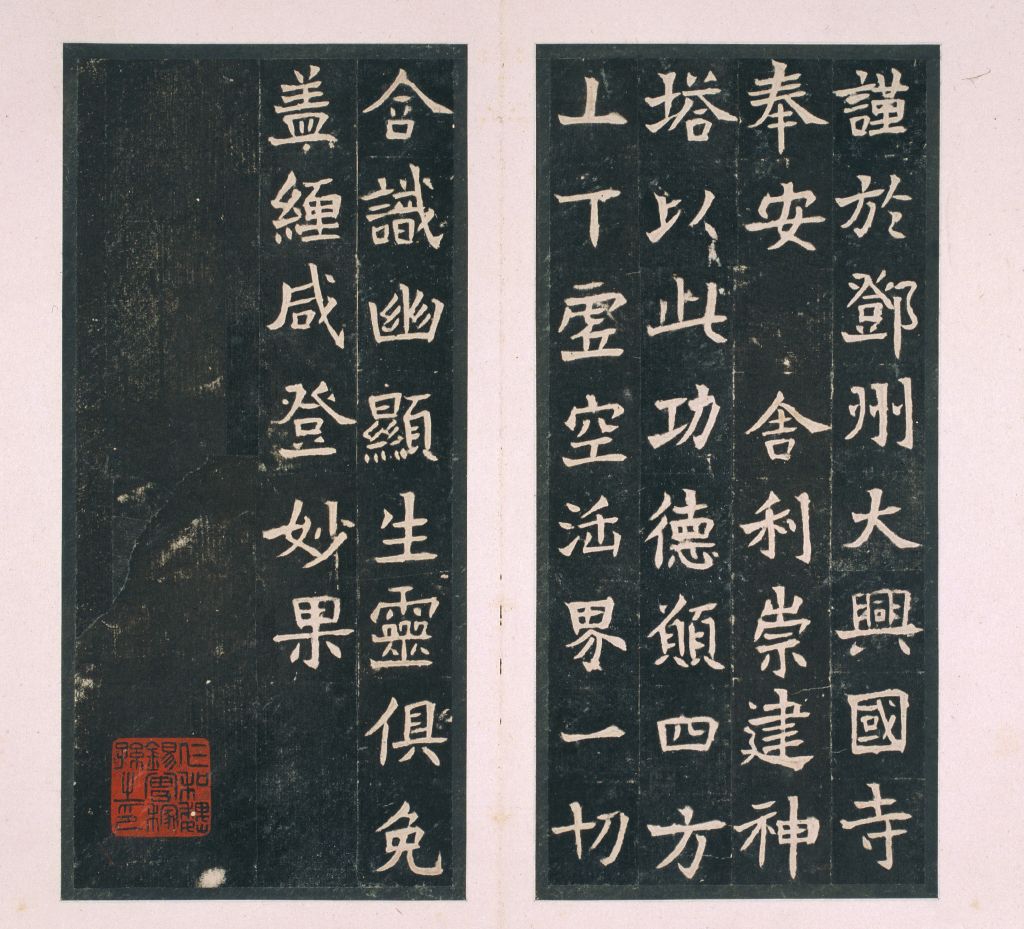 謹於鄧州大興國寺
奉安 舍利崇建神
塔以此功德願四方
丄丅虛空法界一切
含識幽顯生靈俱免
盖纏咸登妙果
仁和魏
錫曾稼
孫之印